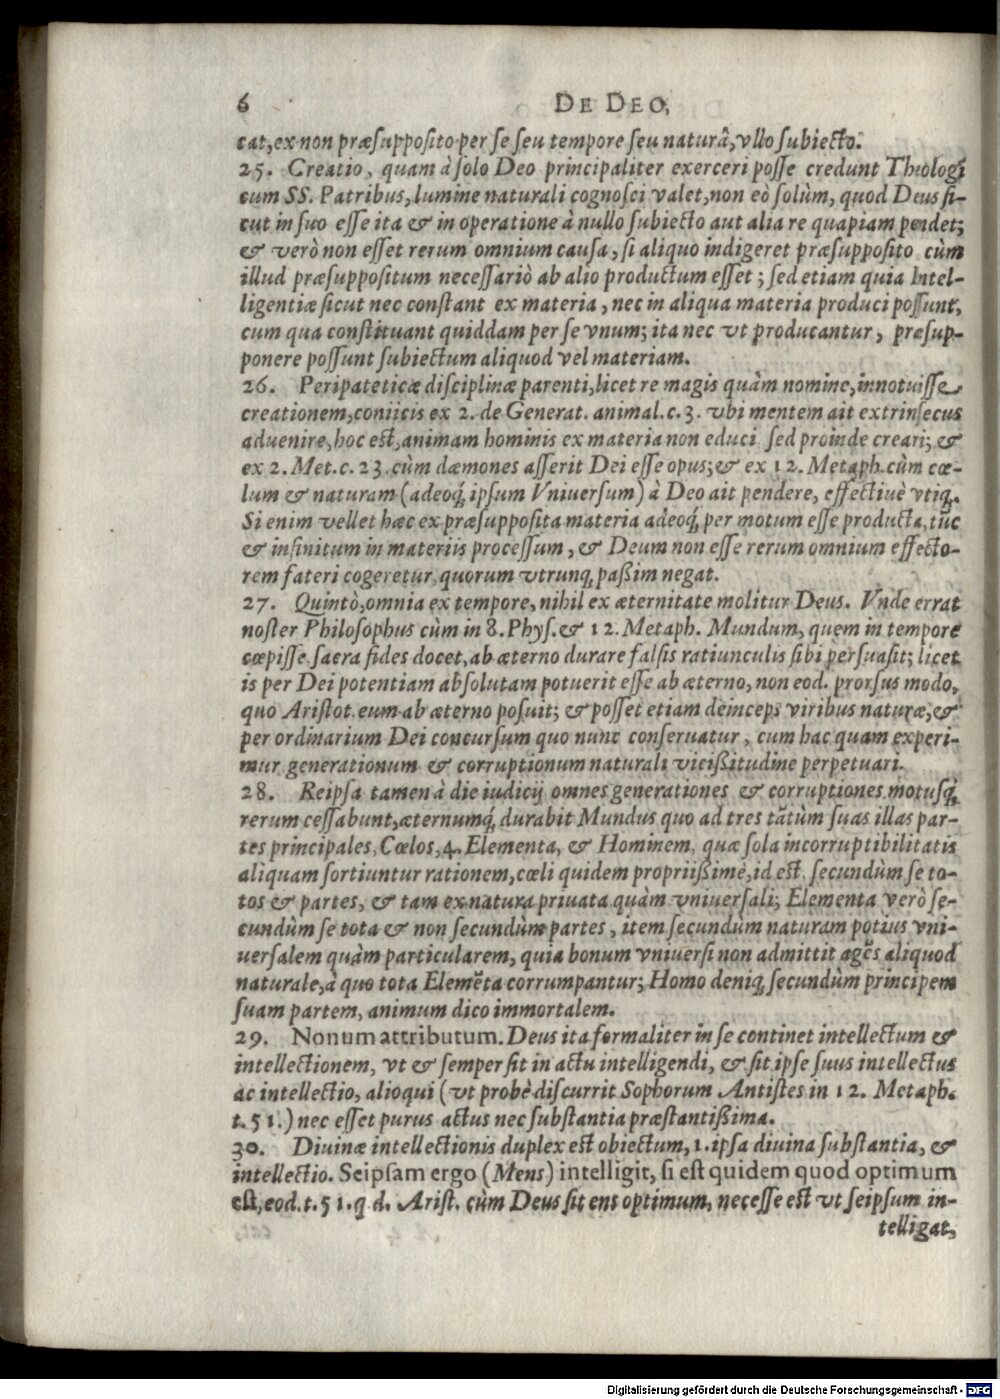 6 DE DEO,
cat, ex non præsupposito per se seu tempore seu naturâ, vllo subiecto.
25. Creatio, quam à solo Deo principaliter exerceri posse credunt Theologi
cum SS. Patribus, lumine naturali cognosci valet, non eò solùm, quod Deus si-
cut in suo esse ita & in operatione à nullo subiecto aut alia re quapiam pendet;
& verò non esset rerum omnium causa, si aliquo indigeret præsupposito cùm
illud præsuppositum necessariò ab alio productum esset; sed etiam quia Intel-
ligentiæ sicut nec constant ex materia, nec in aliqua materia produci possunt,
cum qua constituant quiddam per se vnum; ita nec vt producantur, præsup-
ponere possunt subiectum aliquod vel materiam.
26. Peripateticæ disciplinæ parenti, licet re magis quàm nomine, innotuisse
creationem, coniicis ex 2. de Generat. animal. c. 3. vbi mentem ait extrinsecus
aduenire, hoc est, animam hominis ex materia non educi sed proinde creari; &
ex 2. Met. c. 23. cùm dæmones asserit Dei esse opus; & ex 12. Metaph. cùm cœ-
lum & naturam (adeoq́; ipsum Vniuersum) à Deo ait pendere, effectiuè vtiq;.
Si enim vellet hæc ex præsupposita materia adeoq́; per motum esse producta, tũc
& infinitum in materiis processum, & Deum non esse rerum omnium effecto-
rem fateri cogeretur, quorum vtrunq; paßim negat.
27. Quintò, omnia ex tempore, nihil ex æternitate molitur Deus. Vnde errat
noster Philosophus cùm in 8. Phys. & 12. Metaph. Mundum, quem in tempore
cœpisse sacra fides docet, ab æterno durare falsis ratiunculis sibi persuasit; licet
is per Dei potentiam absolutam potuerit esse ab æterno, non eod. prorsus modo,
quo Aristot. eum ab æterno posuit; & posset etiam deinceps viribus naturæ, &
per ordinarium Dei concursum quo nunc conseruatur, cum hac quam experi-
mur generationum & corruptionum naturali vicißitudine perpetuari.
28. Reipsa tamen à die iudicij omnes generationes & corruptiones motusq́;
rerum cessabunt, æternumq́; durabit Mundus quo ad tres tãtùm suas illas par-
tes principales, Cœlos, 4. Elementa, & Hominem, quæ sola incorruptibilitatis
aliquam sortiuntur rationem, cœli quidem propriißimè, id est, secundùm se to-
tos & partes, & tam ex natura priuata quàm vniuersali; Elementa verò se-
cundùm se tota & non secundùm partes, item secundùm naturam potius vni-
uersalem quàm particularem, quia bonum vniuersi non admittit agẽs aliquod
naturale, à quo tota Elemẽta corrumpantur; Homo deniq; secundùm principem
suam partem, animum dico immortalem.
29. Nonum attributum. Deus ita formaliter in se continet intellectum &
intellectionem, vt & semper sit in actu intelligendi, & sit ipse suus intellectus
ac intellectio, alioqui (vt probè discurrit Sophorum Antistes in 12. Metaph.
t. 51.) nec esset purus actus nec substantia præstantißima.
30. Diuinæ intellectionis duplex est obiectum, 1. ipsa diuina substantia, &
intellectio. Seipsam ergo (Mens) intelligit, si est quidem quod optimum
est, eod. t. 51. q. d. Arist. cùm Deus sit ens optimum, necesse est vt seipsum in-
telligat,
Digitalisierung gefördert durch die Deutsche Forschungsgemeinschaft - DFG